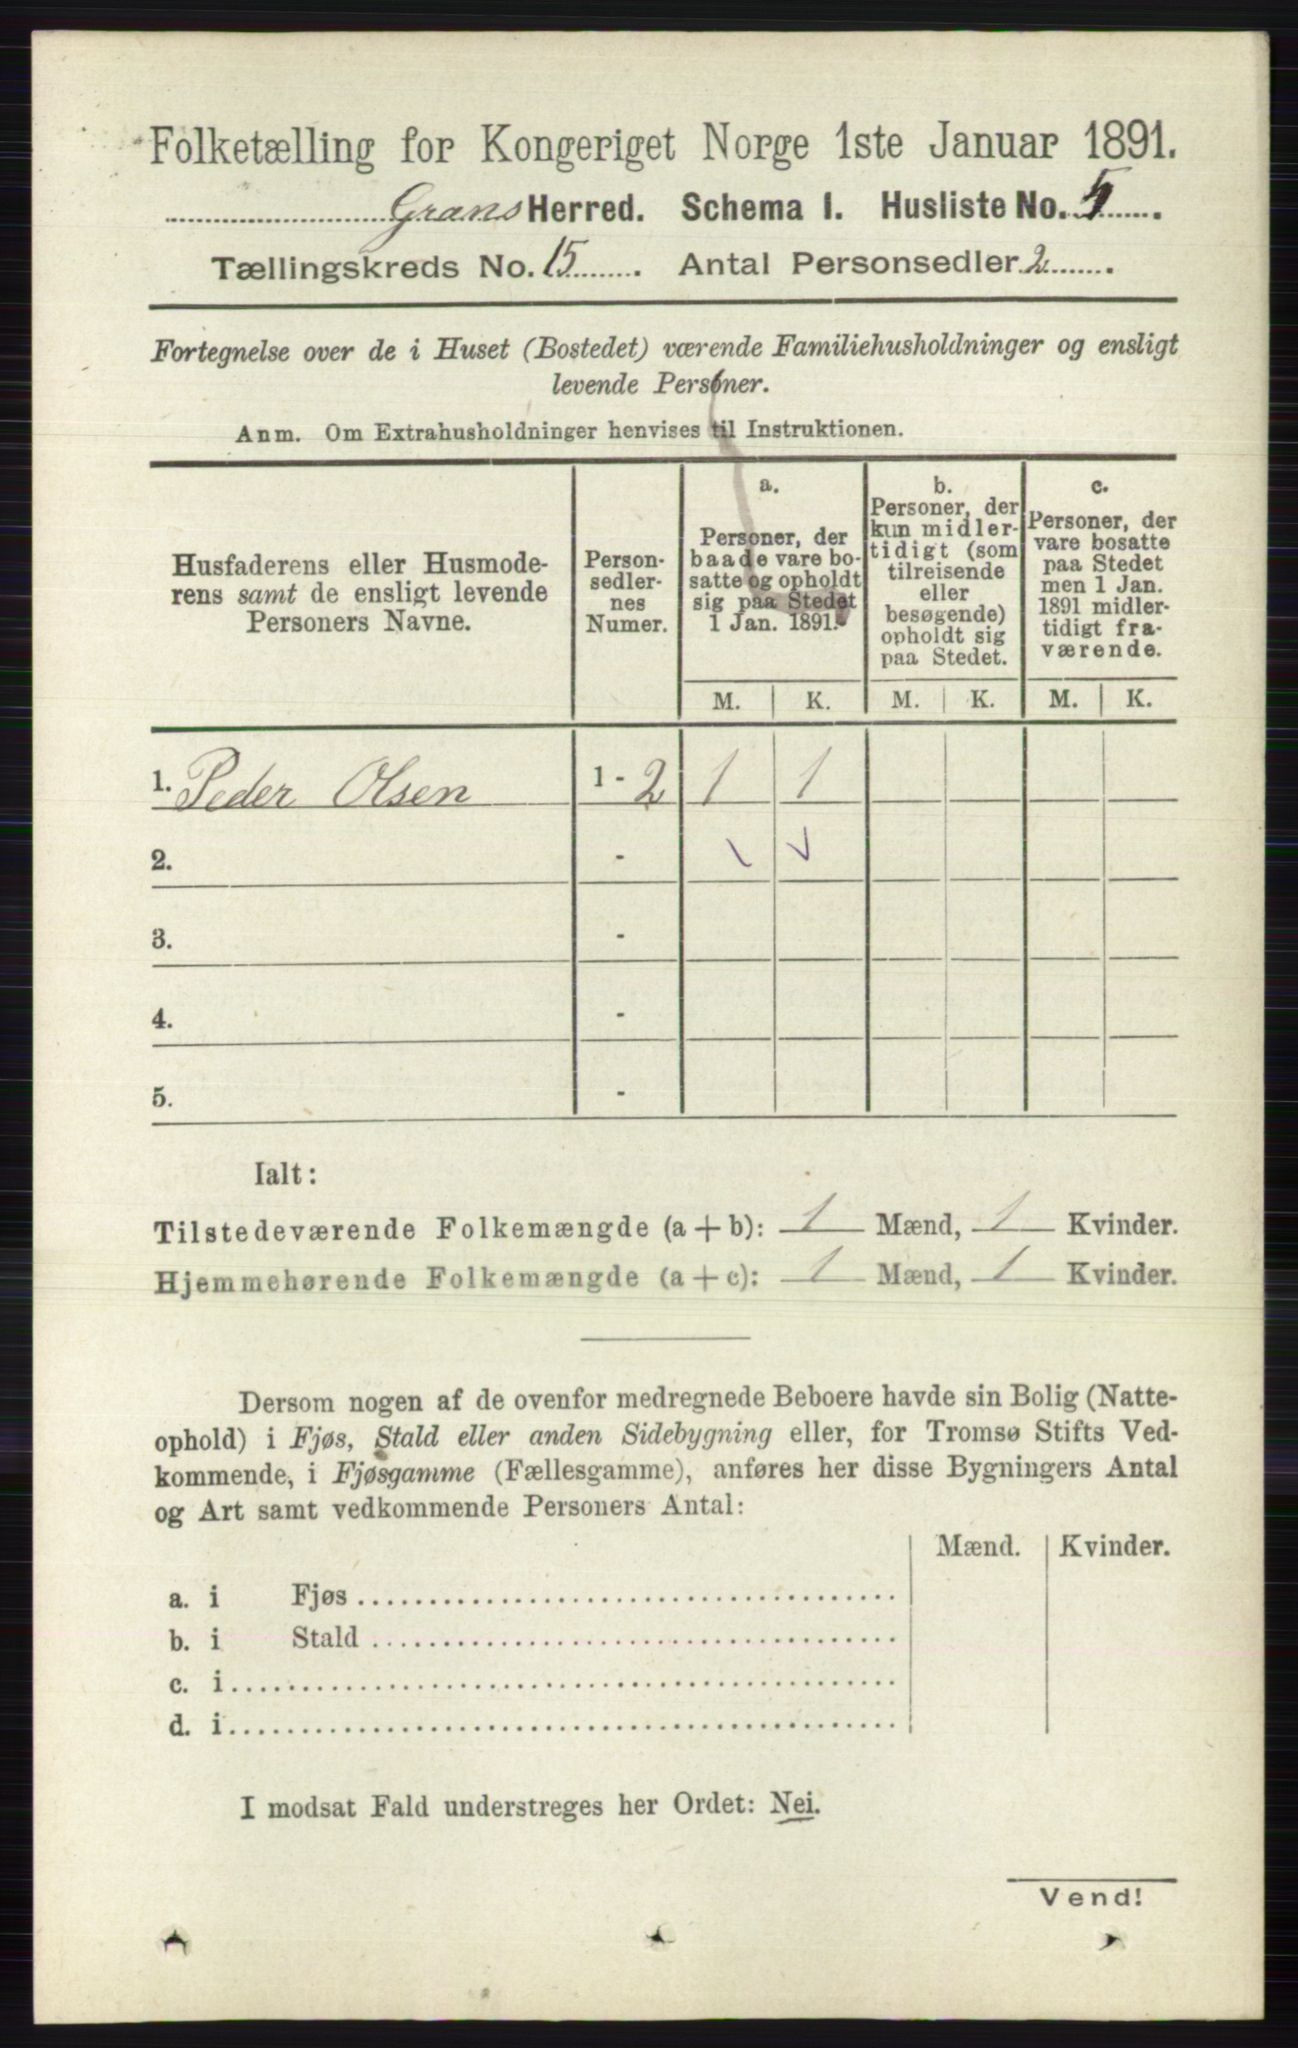 Folketælling for Kongeriget Norge 1ste Januar 1891.
Grans Herred. Schema I. Husliste No. 5.
Tællingskreds No. 15. Antal Personsedler 2.
Fortegnelse over de i Huset (Bostedet) værende Familiehusholdninger og ensligt
levende Personer.
Anm. Om Extrahusholdninger henvises til Instruktionen.
Husfaderens eller Husmode-
rens samt de ensligt levende
Personers Navne.
Person-
sedler-
nes
Numer.
a.
Personer, der
baade vare bo-
satte og opholdt
sig paa Stedet
1 Jan. 1891.
b.
Personer, der
kun midler-
tidigt (som
tilreisende
eller
besøgende)
opholdt sig
paa Stedet.
c.
Personer, der
vare bosatte
paa Stedet
men 1 Jan.
1891 midler-
tidigt fra-
værende.
M. K. M. K. M. K.
1. Peder Olsen 1 - 2 1 1
2. -
3. -
4. -
5. -
Ialt:
Tilstedeværende Folkemængde (a + b): 1 Mænd, 1 Kvinder.
Hjemmehørende Folkemængde (a + c): 1 Mænd, 1 Kvinder.
Dersom nogen af de ovenfor medregnede Beboere havde sin Bolig (Natte-
ophold) i Fjøs, Stald eller anden Sidebygning eller, for Tromsø Stifts Ved-
kommende, i Fjøsgamme (Fællesgamme), anføres her disse Bygningers Antal
og Art samt vedkommende Personers Antal:
Mænd. Kvinder.
a. i Fjøs
b. i Stald
c. i
d. i
I modsat Fald understreges her Ordet: Nei.
Vend!